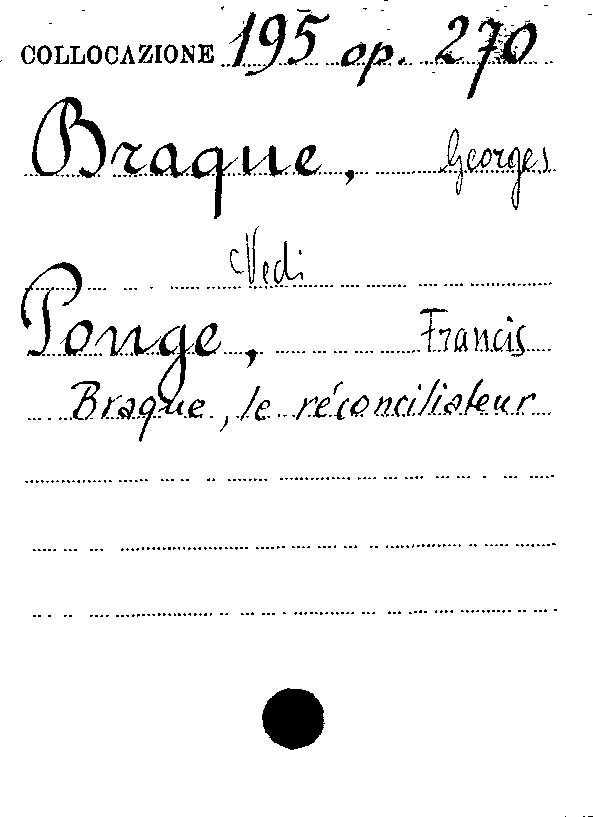 COLLOCAZIONE 195 op. 270
Braque, Georges
Vedi
Ponge, Francis
Braque, le réconciliateur